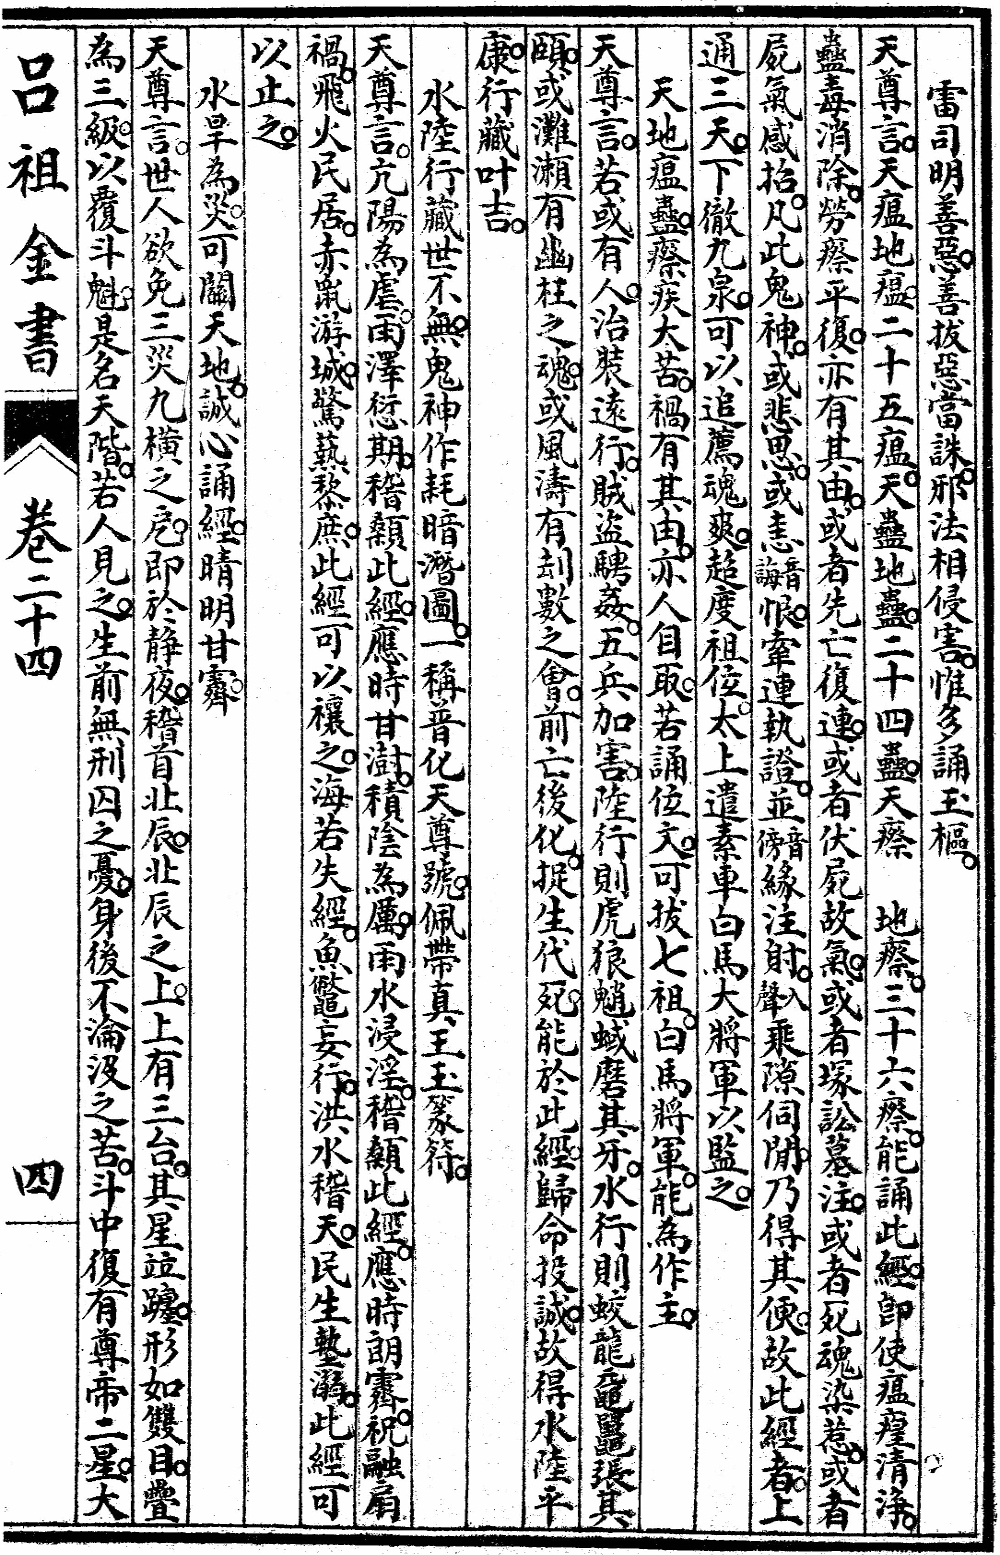 雷司明善惡。善拔惡當誅。邪法相侵害。惟多誦玉樞。
天尊言。天瘟地瘟。二十五瘟。天蠱地蠱。二十四蠱。天瘵　地瘵。三十六瘵。能誦此經。卽使瘟㾮清淨。
蠱毒消除。勞瘵平復。亦有其由。或者先亡復連。或者伏屍故氣。或者塚訟墓注。或者死魂染惹。或者
屍氣感招。凡此鬼神。或悲思。或恚音誨恨。牽連執證。並音傍緣注射。入聲乘隙伺閒。乃得其便。故此經者。上
通三天。下徹九泉。可以追薦魂爽。超度祖位。太上遣素車白馬大將軍以監之。
天地瘟蠱。瘵疾太苦。禍有其由。亦人自取。若誦位文。可拔七祖。白馬將軍。能為作主。
天尊言。若或有人。治裝遠行。賊盜騁姦。五兵加害。陸行則虎狼魈蜮磨其牙。水行則蛟龍黿鼉張其
頤。或灘瀨有幽枉之魂。或風濤有刦數之會。前亡後化。捉生代死。能於此經。歸命投誠。故得水陸平
康。行藏叶吉。
水陸行藏世不無。鬼神作耗暗潛圖。一稱普化天尊號。佩帶真王玉篆符。
天尊言。亢陽為虐。雨澤愆期。稽顙此經。應時甘澍。積陰為厲。雨水浸淫。稽顙此經。應時朗霽。祝融扇
禍。飛火民居。赤鼠游城。驚爇黎庶。此經可以禳之。海若失經。魚鼈妄行。洪水稽天。民生墊溺。此經可
以止之。
水旱為災。可關天地。誠心誦經。晴明甘霽。
天尊言。世人欲免三災九橫之戹。即於靜夜。稽首北辰。北辰之上。上有三台。其星竝躔。形如雙目。疊
為三級。以覆斗魁。是名天階。若人見之。生前無刑囚之憂。身後不淪汲之苦。斗中復有尊帝二星。大
呂祖金書
卷二十四
四